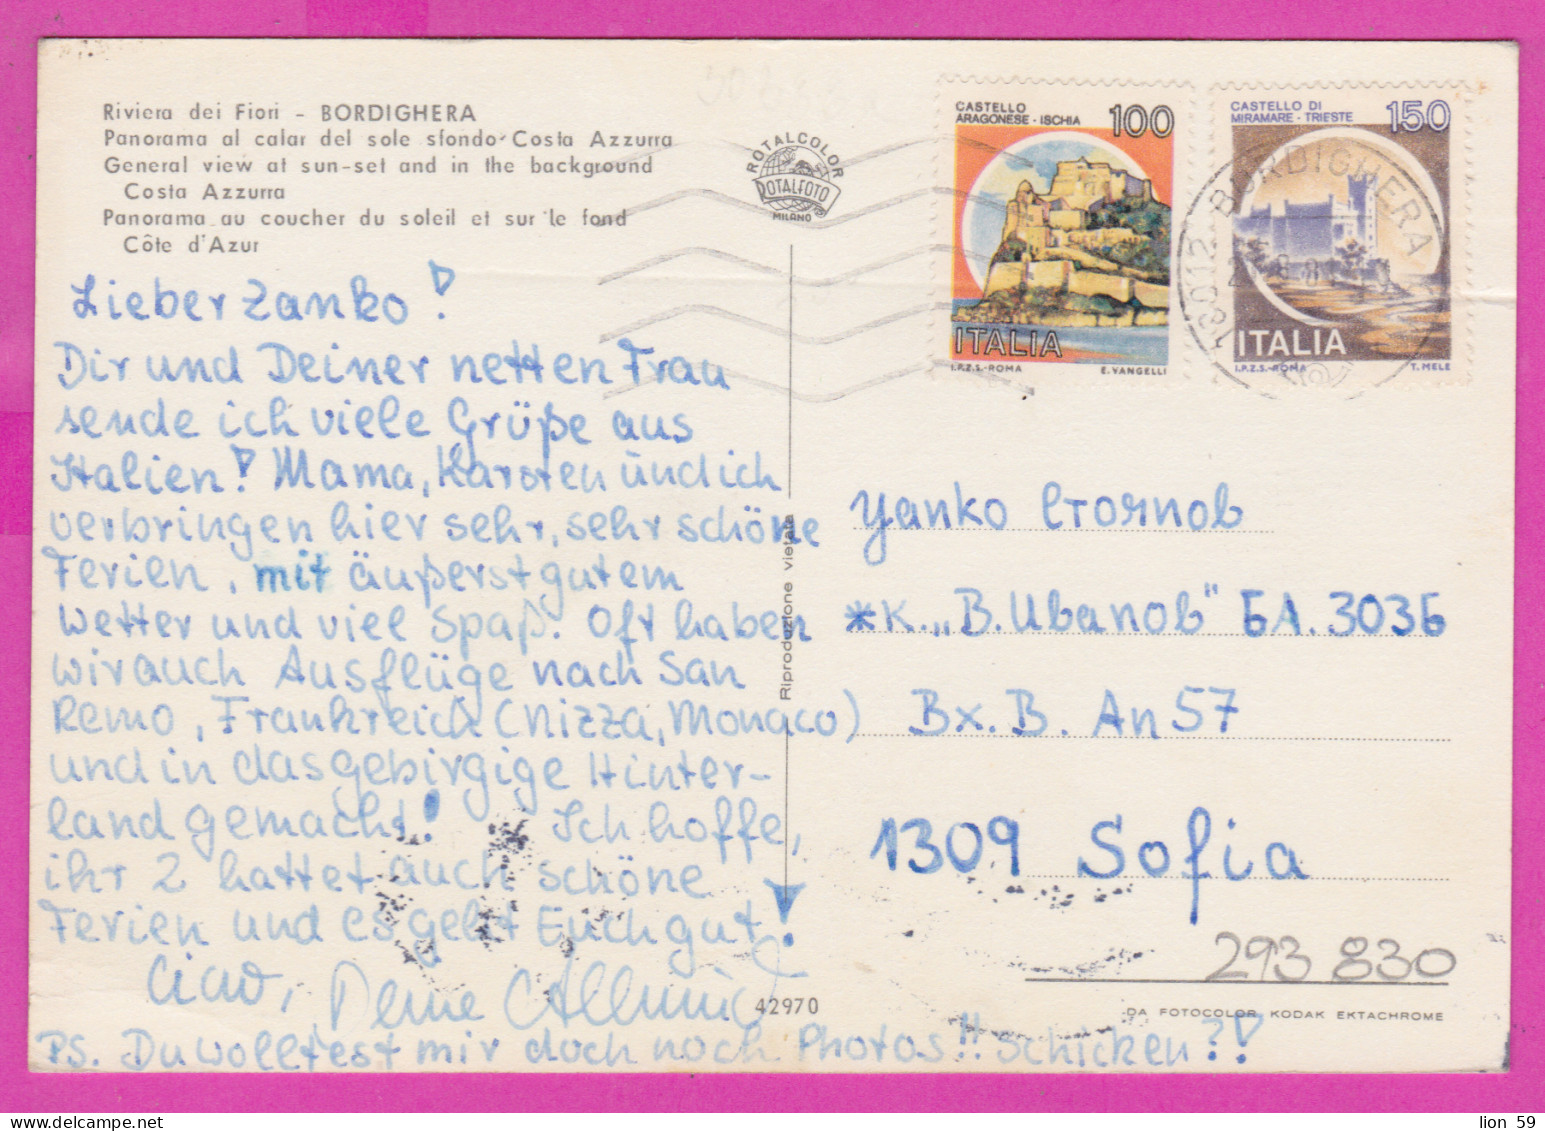 Riviera dei Fiori - BORDIGHERA
Panorama al calar del sole sfondo Costa Azzurra
General view at sun-set and in the background
Costa Azzurra
Panorama au coucher du soleil et sur le fond
Côte d'Azur
ROTALCOLOR
ROTALFOTO
MILANO
CASTELLO
ARAGONESE - ISCHIA
100
ITALIA
I.P.Z.S. - ROMA E. VANGELLI
CASTELLO DI
MIRAMARE - TRIESTE
150
ITALIA
I.P.Z.S. - ROMA T. MELE
18012 BORDIGHERA
Lieber Zanko!
Dir und Deiner netten Frau
sende ich viele Grüße aus
Italien! Mama, Karsten und ich
verbringen hier sehr, sehr schöne
Ferien, mit äußerst gutem
Wetter und viel Spaß. Oft haben
wir auch Ausflüge nach San
Remo, Frankreich (Nizza, Monaco)
und in das gebirgige Hinter-
land gemacht! Ich hoffe,
ihr 2 hattet auch schöne
Ferien und es geht Euch gut!
Ciao, Deine
PS. Du wolltest mir doch noch Photos!! schicken?!
Riproduzione vietata
42970
Yanko Стоянов
*к. „В. Иванов" БЛ. 303Б
Вх. В. Ап 57
1309 Sofia
293 830
DA FOTOCOLOR KODAK EKTACHROME
lion 59